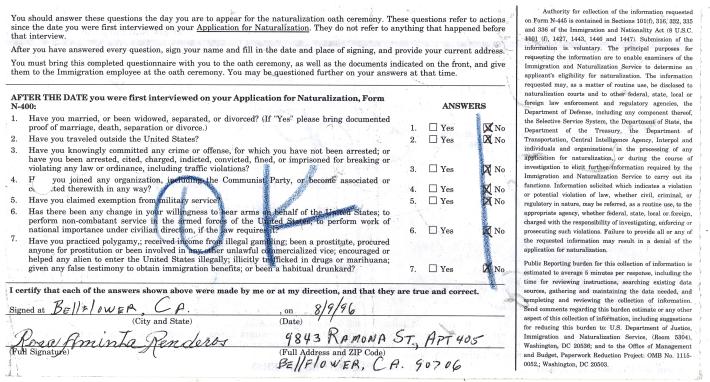 You should answer these questions the day you are to appear for the naturalization oath ceremony. These questions refer to actions
since the date you were first interviewed on your Application for Naturalization. They do not refer to anything that happened before
that interview.
After you have answered every question, sign your name and fill in the date and place of signing, and provide your current address.
You must bring this completed questionnaire with you to the oath ceremony, as well as the documents indicated on the front, and give
them to the Immigration employee at the oath ceremony. You may be questioned further on your answers at that time.
AFTER THE DATE you were first interviewed on your Application for Naturalization, Form
N-400:
ANSWERS
1. Have you married, or been widowed, separated, or divorced? (If "Yes" please bring documented
proof of marriage, death, separation or divorce.)
1. ☐ Yes ☒ No
2. Have you traveled outside the United States?
2. ☐ Yes ☒ No
3. Have you knowingly committed any crime or offense, for which you have not been arrested; or
have you been arrested, cited, charged, indicted, convicted, fined, or imprisoned for breaking or
violating any law or ordinance, including traffic violations?
3. ☐ Yes ☒ No
4. H you joined any organization, including the Communist Party, or become associated or
o ted therewith in any way?
4. ☐ Yes ☒ No
5. Have you claimed exemption from military service?
5. ☐ Yes ☒ No
6. Has there been any change in your willingness to bear arms on behalf of the United States; to
perform non-combatant service in the armed forces of the United States; to perform work of
national importance under civilian direction, if the law requires
6. ☐ Yes ☒ No
7. Have you practiced polygamy; received income from illegal gambling; been a prostitute, procured
anyone for prostitution or been involved in any other unlawful commercialized vice; encouraged or
helped any alien to enter the United States illegally; illicitly trafficked in drugs or marihuana;
given any false testimony to obtain immigration benefits; or been a habitual drunkard?
7. ☐ Yes ☒ No
OK
I certify that each of the answers shown above were made by me or at my direction, and that they are true and correct.
Signed at BELLFLOWER, CA. , on 8/9/96
(City and State) (Date)
Rosa Aminta Renderos 9843 RAMONA ST, APT 405
(Full Signature) (Full Address and ZIP Code)
BELLFLOWER, CA. 90706
Authority for collection of the information requested
on Form N-445 is contained in Sections 101(f), 316, 332, 335
and 336 of the Immigration and Nationality Act (8 U.S.C.
1101 (f), 1427, 1443, 1446 and 1447). Submission of the
information is voluntary. The principal purposes for
requesting the information are to enable examiners of the
Immigration and Naturalization Service to determine an
applicant's eligibility for naturalization. The information
requested may, as a matter of routine use, be disclosed to
naturalization courts and to other federal, state, local or
foreign law enforcement and regulatory agencies, the
Department of Defense, including any component thereof,
the Selective Service System, the Department of State, the
Department of the Treasury, the Department of
Transportation, Central Intelligence Agency, Interpol and
individuals and organizations in the processing of any
application for naturalization, or during the course of
investigation to elicit further information required by the
Immigration and Naturalization Service to carry out its
functions. Information solicited which indicates a violation
or potential violation of law, whether civil, criminal, or
regulatory in nature, may be referred, as a routine use, to the
appropriate agency, whether federal, state, local or foreign,
charged with the responsibility of investigating, enforcing or
prosecuting such violations. Failure to provide all or any of
the requested information may result in a denial of the
application for naturalization.
Public Reporting burden for this collection of information is
estimated to average 5 minutes per response, including the
time for reviewing instructions, searching existing data
sources, gathering and maintaining the data needed, and
completing and reviewing the collection of information.
Send comments regarding this burden estimate or any other
aspect of this collection of information, including suggestions
for reducing this burden to: U.S. Department of Justice,
Immigration and Naturalization Service, (Room 5304),
Washington, DC 20536; and to the Office of Management
and Budget, Paperwork Reduction Project: OMB No. 1115-
0052.; Washington, DC 20503.